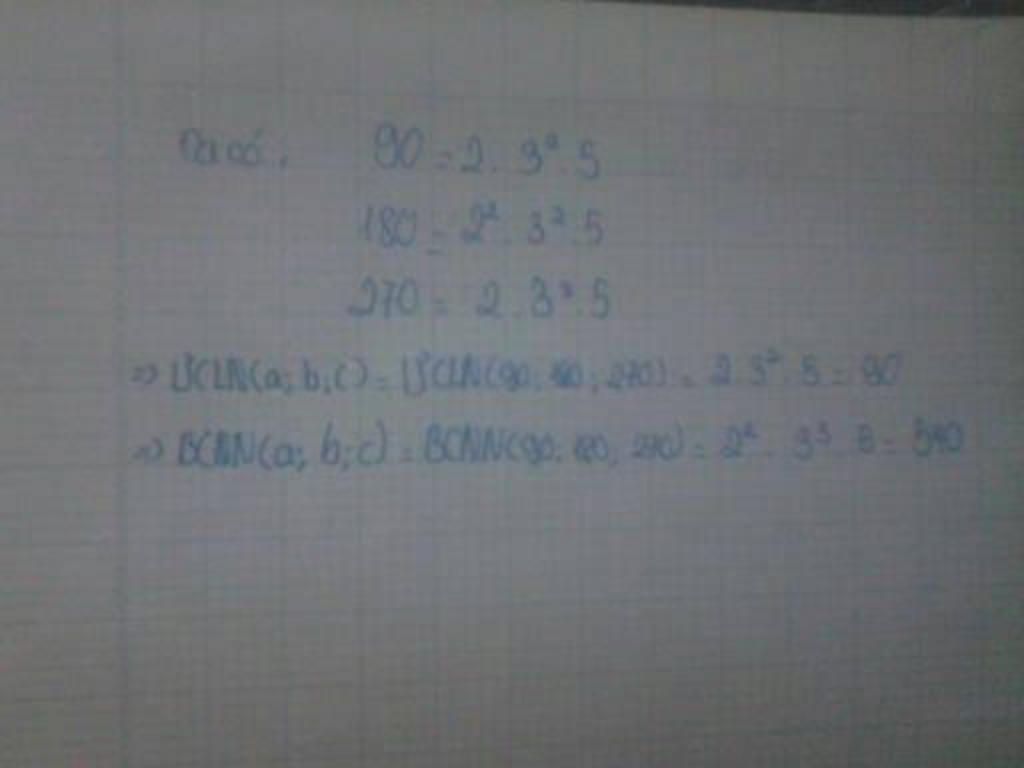 Ta có: 90 = 2 . 3² . 5
180 = 2² . 3² . 5
270 = 2 . 3³ . 5
=> ƯCLN(a; b; c) = ƯCLN(90; 180; 270) = 2 . 3² . 5 = 90
=> BCNN(a; b; c) = BCNN(90; 180; 270) = 2² . 3³ . 5 = 540